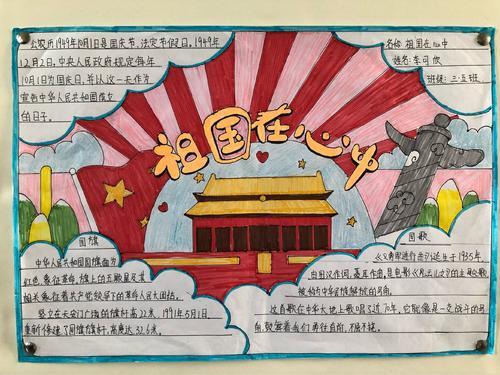 公农历1949年10月1日是国庆节,法定节假日,1949年
12月2日,中央人民政府规定每年
10月1日为国庆日,并以这一天作为
宣告中华人民共和国成立
的日子。
名称:祖国在心中
姓名:李可欣
班级:三.五班
祖国在心中
国旗
中华人民共和国国旗面为
红色,象征革命,旗上的五颗星及其
相关象征着共产党领导下的革命人民大团结。
竖立在天安门广场的旗杆高22米,1991年5月1日,
重新修建了国旗旗杆,高度达32.6米。
国歌
《义勇军进行曲》诞生于1935年,
由田汉作词,聂耳作曲,是电影《风云儿女》的主题歌,
被称为中华民族解放的号角。
这首歌在中华大地上歌唱了近70年,它就像是一支战斗的号
角,鼓舞着我们勇往直前,不屈不挠。